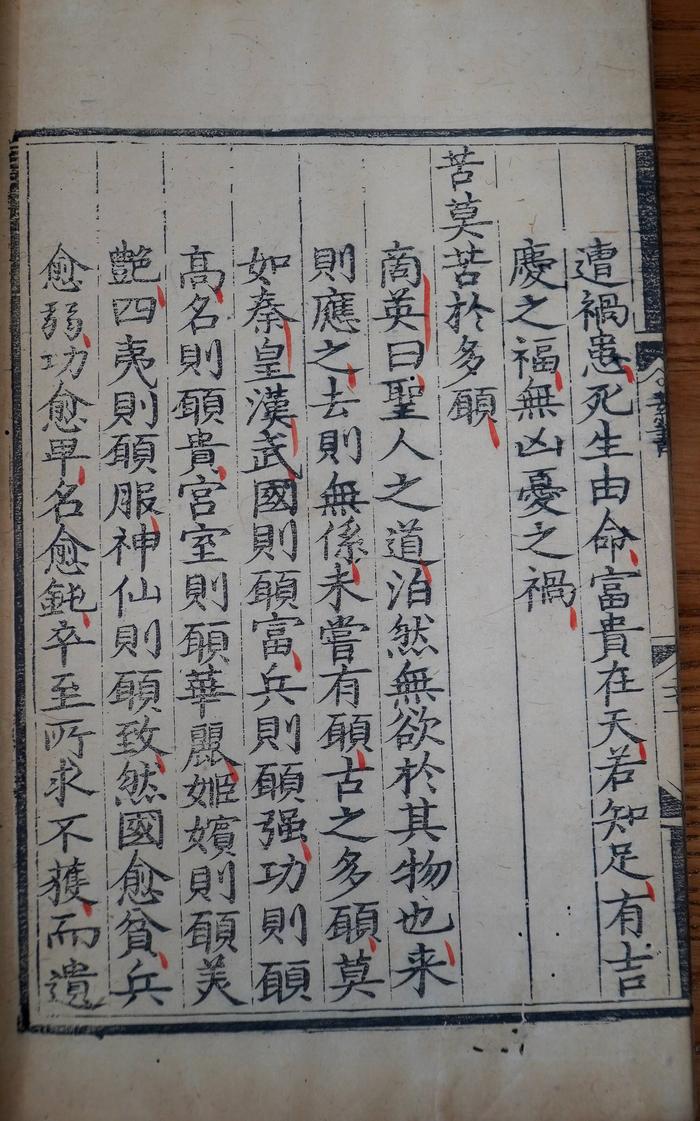 遭禍患死生由命富貴在天若知足有吉
慶之福無凶憂之禍
苦莫苦於多願
商英曰聖人之道泊然無欲於其物也来
則應之去則無係未嘗有願古之多願莫
如秦皇漢武國則願富兵則願强功則願
高名則願貴宮室則願華麗姬嬪則願美
艶四夷則願服神仙則願致然國愈貧兵
愈弱功愈卑名愈鈍卒至所求不獲而遺